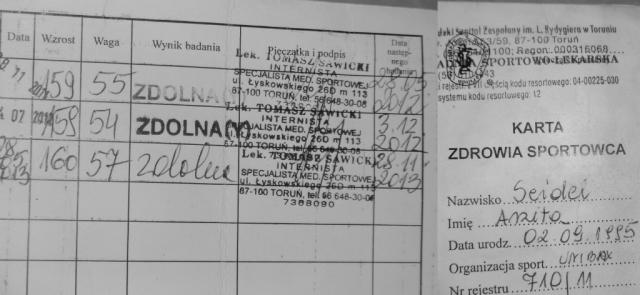 Data Wzrost Waga Wynik badania Pieczątka i podpis Data następnego badania
159 55 ZDOLNA
Lek. TOMASZ SAWICKI
INTERNISTA
SPECJALISTA MED. SPORTOWEJ
ul. Łyskowskiego 26D m 113
87-100 TORUŃ, tel. 56 648-30-08
2012
07 159 54 ZDOLNA(Y)
Lek. TOMASZ SAWICKI
INTERNISTA
SPECJALISTA MED. SPORTOWEJ
ul. Łyskowskiego 26D m 113
87-100 TORUŃ, tel. 56 648-30-08
3.12
2012
28 05 2013 160 57 zdolna
Lek. TOMASZ SAWICKI
INTERNISTA
SPECJALISTA MED. SPORTOWEJ
ul. Łyskowskiego 26D m 113
87-100 TORUŃ, tel. 56 648-30-08
7388090
28.11
2013
Szpital Zespolony im. L. Rydygiera w Toruniu
53/59, 87-100 Toruń
Regon: 000316068
SPORTOWO-LEKARSKA
częścią kodu resortowego: 04-00225-030
systemu kodu resortowego: 12
KARTA
ZDROWIA SPORTOWCA
Nazwisko Seidei
Imię Anita
Data urodz. 02.09.1995
Organizacja sport. UNIBAX
Nr rejestru 710/11